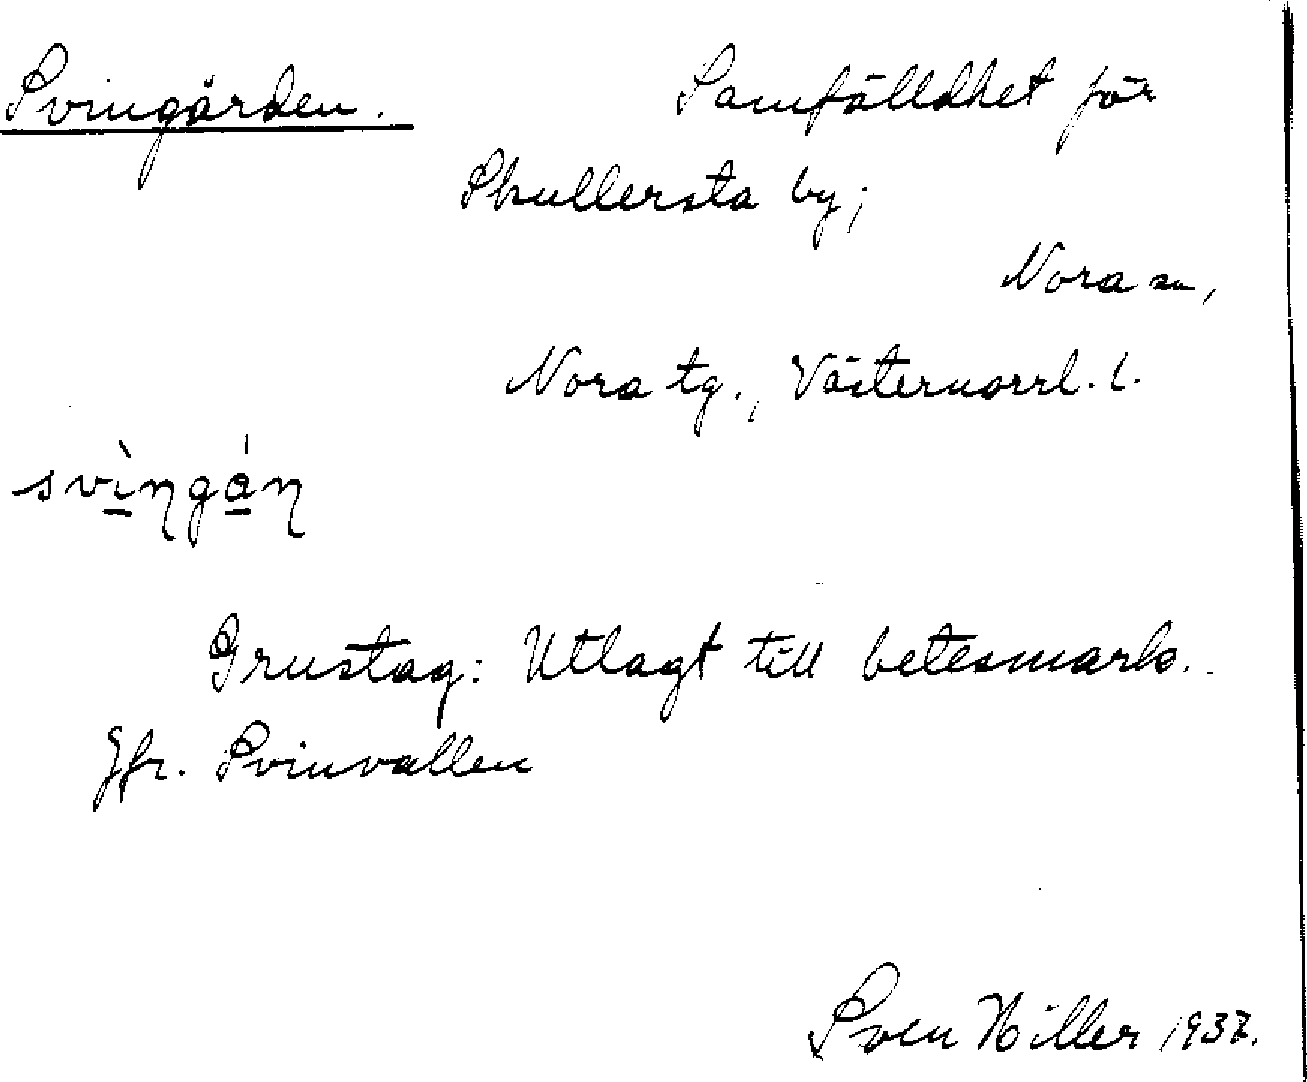 Svingården. Samfälldhet för
Skullersta by;
Nora sn,
Nora tg., Västernorrl. l.
svìngán
Grustag: Utlagt till betesmark.
Jfr. Svinvallen
Sven Hiller 1937.